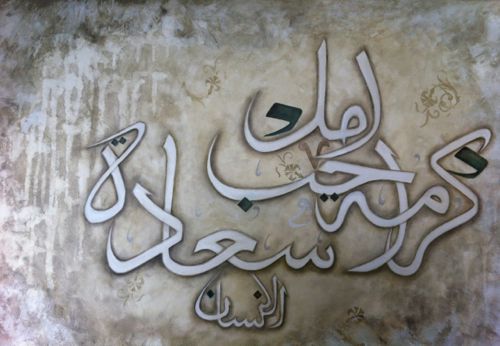 امل
حب
كرامة
سعادة
الانسان